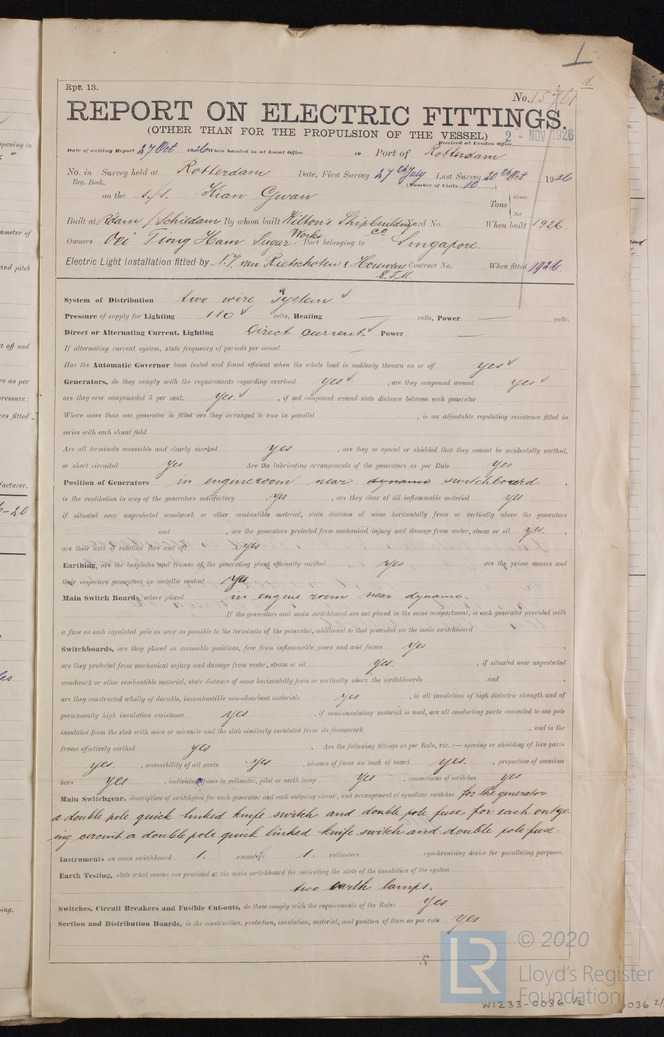 Rpt. 13.
No. 15761
REPORT ON ELECTRIC FITTINGS.
(OTHER THAN FOR THE PROPULSION OF THE VESSEL)
Received at London Office 2 - NOV 1926
Date of writing Report 27 Oct 1926 When handed in at Local Office Port of Rotterdam
No. in Survey held at Rotterdam Date, First Survey 27th July Last Survey 20th Oct 1926
Reg. Book. (Number of Visits 10)
on the s/s. Kian Gwan Tons { Gross
Net
Built at Schiedam By whom built Wilton's Shipbuilding Yard No. When built 1926
Works Co
Owners Oei Tiong Ham Sugar Port belonging to Singapore
Electric Light Installation fitted by van Rietschoten & Houwens Contract No. When fitted 1926
System of Distribution two wire system
Pressure of supply for Lighting 110 volts, Heating — volts, Power — volts.
Direct or Alternating Current, Lighting Direct current Power —
If alternating current system, state frequency of periods per second —
Has the Automatic Governor been tested and found efficient when the whole load is suddenly thrown on or off yes
Generators, do they comply with the requirements regarding overload yes, are they compound wound yes
are they over compounded 5 per cent. yes, if not compound wound state distance between each generator
Where more than one generator is fitted are they arranged to run in parallel , is an adjustable regulating resistance fitted in
series with each shunt field
Are all terminals accessible and clearly marked yes, are they so spaced or shielded that they cannot be accidentally earthed,
or short circuited yes Are the lubricating arrangements of the generators as per Rule yes
Position of Generators in engineroom near dynamo switchboard
is the ventilation in way of the generators satisfactory yes, are they clear of all inflammable material yes
if situated near unprotected woodwork or other combustible material, state distance of same horizontally from or vertically above the generators
and , are the generators protected from mechanical injury and damage from water, steam or oil yes.
are their axes of rotation fore and aft yes
Earthing, are the bedplates and frames of the generating plant efficiently earthed yes are the prime movers and
their respective generators in metallic contact yes.
Main Switch Boards, where placed in engine room near dynamo.
If the generators and main switchboard are not placed in the same compartment, is each generator provided with
a fuse on each insulated pole as near as possible to the terminals of the generator, additional to that provided on the main switchboard
Switchboards, are they placed in accessible positions, free from inflammable gases and acid fumes yes
are they protected from mechanical injury and damage from water, steam or oil yes. , if situated near unprotected
woodwork or other combustible material, state distance of same horizontally from or vertically above the switchboards and
are they constructed wholly of durable, incombustible non-absorbent materials yes , is all insulation of high dielectric strength and of
permanently high insulation resistance yes , if semi-insulating material is used, are all conducting parts connected to one pole
insulated from the slab with mica or micanite and the slab similarly insulated from its framework , and is the
frame effectively earthed yes Are the following fittings as per Rule, viz.:— spacing or shielding of live parts
yes. , accessibility of all parts yes , absence of fuses on back of board yes. , proportion of omnibus
bars yes , individual fuses to voltmeter, pilot or earth lamp yes , connections of switches yes
Main Switchgear, description of switchgear for each generator and each outgoing circuit, and arrangement of equalizer switches for the generator
a double pole quick linked knife switch and double pole fuse, for each outgo-
ing circuit a double pole quick linked knife switch and double pole fuse
Instruments on main switchboard 1. ammeters 1. voltmeters synchronising device for paralleling purposes.
Earth Testing, state what means are provided at the main switchboard for indicating the state of the insulation of the system
two earth lamps.
Switches, Circuit Breakers and Fusible Cut-outs, do these comply with the requirements of the Rules yes
Section and Distribution Boards, is the construction, protection, insulation, material, and position of these as per rule yes
LR
© 2020
Lloyd's Register
Foundation
W1233-0036 1/2
0036 2/